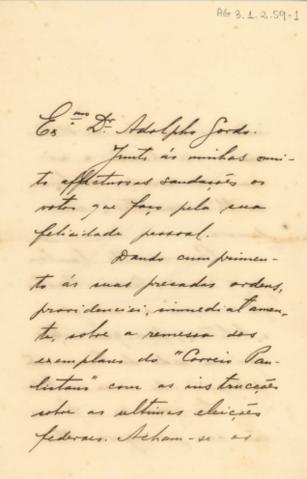 AG 3.1.2.59-1
Exmo Dr. Adolpho Gordo.
Junto ás minhas mui-
to affectuosas saudações os
votos que faço pela sua
felicidade pessoal.
Dando cumprimen-
to ás suas presadas ordens,
providenciei, immediatamen-
te, sobre a remessa dos
exemplares do "Correio Pau-
listano" com as instrucções
sobre as ultimas eleições
federaes. Acham-se os